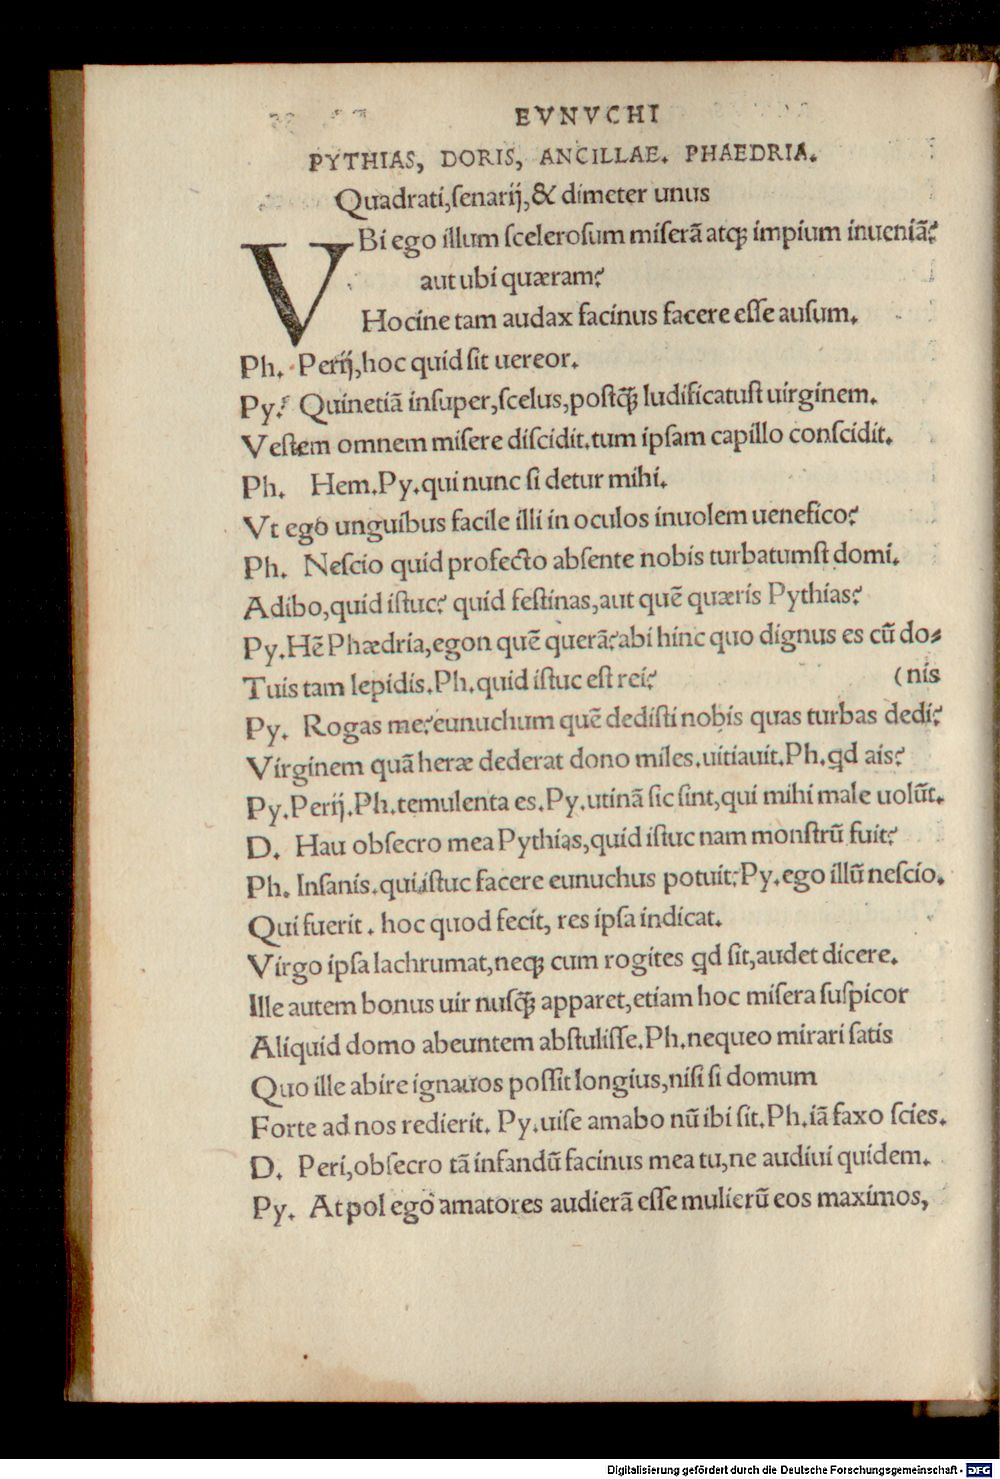 EVNVCHI
PYTHIAS, DORIS, ANCILLAE. PHAEDRIA.
Quadrati,ſenarij,& dimeter unus
VBi ego illum ſceleroſum miſerã atq; impium inueniã?
aut ubi quæram?
Hocine tam audax facinus facere eſſe auſum.
Ph. Perij,hoc quid ſit uereor.
Py. Quinetiã inſuper,ſcelus,poſtq̃ ludificatuſt uirginem.
Veſtem omnem miſere diſcidit.tum ipſam capillo conſcidit.
Ph. Hem.Py.qui nunc ſi detur mihi.
Vt ego unguibus facile illi in oculos inuolem uenefico?
Ph. Neſcio quid profecto abſente nobis turbatumſt domi.
Adibo,quid iſtuc? quid feſtinas,aut quẽ quæris Pythias?
Py.Hẽ Phædria,egon quẽ querã?abi hinc quo dignus es cũ do-
Tuis tam lepidis.Ph.quid iſtuc eſt rei? (nis
Py. Rogas me?eunuchum quẽ dediſti nobis quas turbas dedi?
Virginem quã heræ dederat dono miles.uitiauit.Ph.qd ais?
Py.Perij.Ph.temulenta es.Py.utinã ſic ſint,qui mihi male uolũt.
D. Hau obſecro mea Pythias,quid iſtuc nam monſtrũ fuit?
Ph. Inſanis.qui iſtuc facere eunuchus potuit?Py.ego illũ neſcio.
Qui fuerit . hoc quod fecit, res ipſa indicat.
Virgo ipſa lachrumat,neq; cum rogites qd ſit,audet dicere.
Ille autem bonus uir nuſq̃ apparet,etiam hoc miſera ſuſpicor
Aliquid domo abeuntem abſtuliſſe.Ph.nequeo mirari ſatis
Quo ille abire ignauos poſſit longius,niſi ſi domum
Forte ad nos redierit. Py.uiſe amabo nũ ibi ſit.Ph.iã faxo ſcies.
D. Peri,obſecro tã infandũ facinus mea tu,ne audiui quidem.
Py. At pol ego amatores audierã eſſe mulierũ eos maximos,
Digitalisierung gefördert durch die Deutsche Forschungsgemeinschaft - DFG